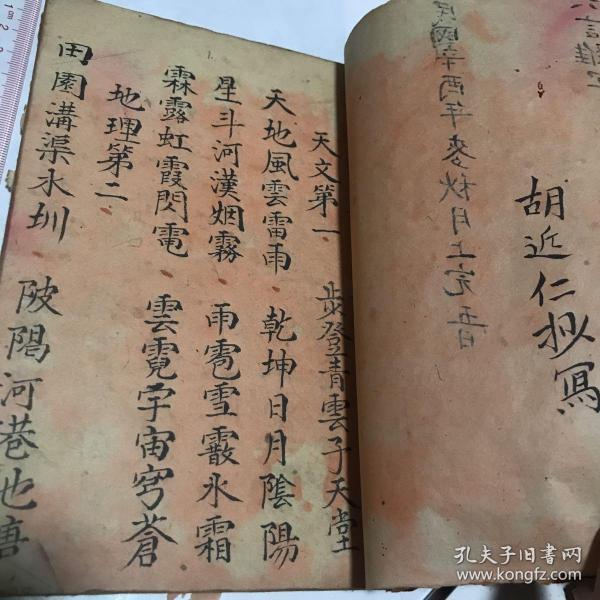 六言雜字
民國辛酉年麥秋月上完吉日
胡近仁抄寫
天文第一 步登青雲子天堂
天地風雲雷雨 乾坤日月陰陽
星斗河漢烟霧 雨雹雪霰氷霜
霖露虹霞閃電 雲霓宇宙穹蒼
地理第二
田園溝渠水圳 陂陽河巷也唐
孔夫子旧书网
www.kongfz.com